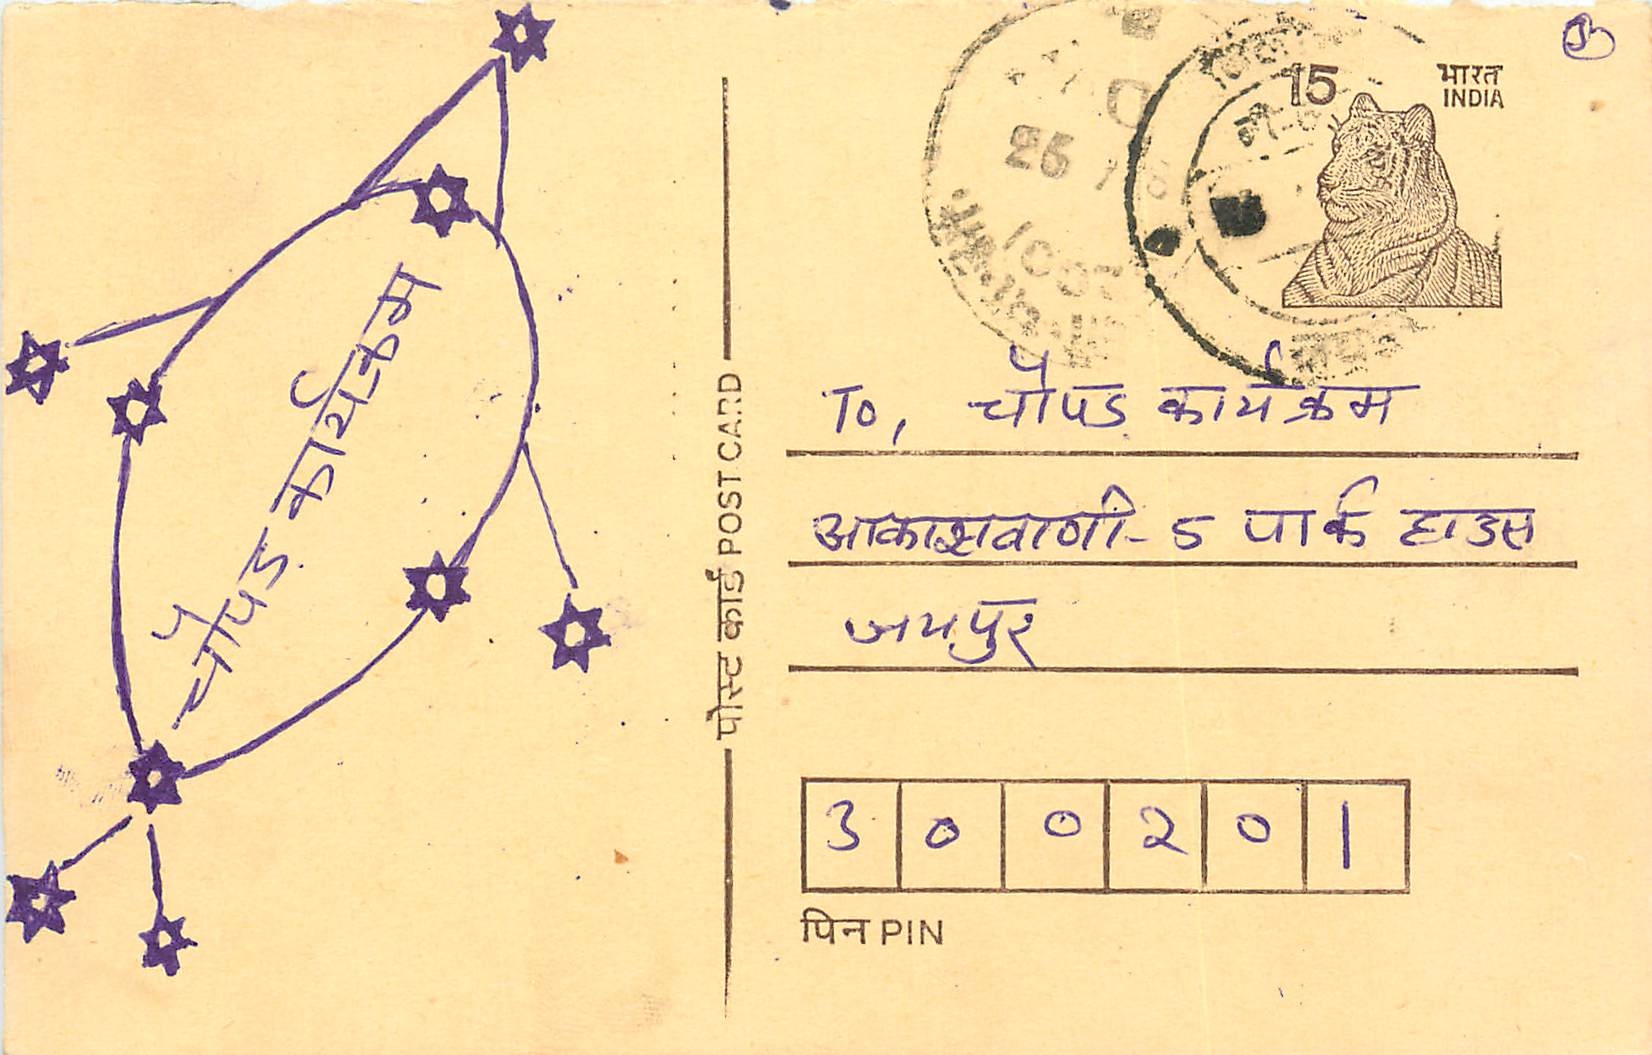 चौपड कार्यक्रम
पोस्ट कार्ड POST CARD
15
भारत
INDIA
25
To, चौपड कार्यक्रम
आकाशवाणी- 5 पार्क हाउस
जयपुर
3 0 0 2 0 1
पिन PIN